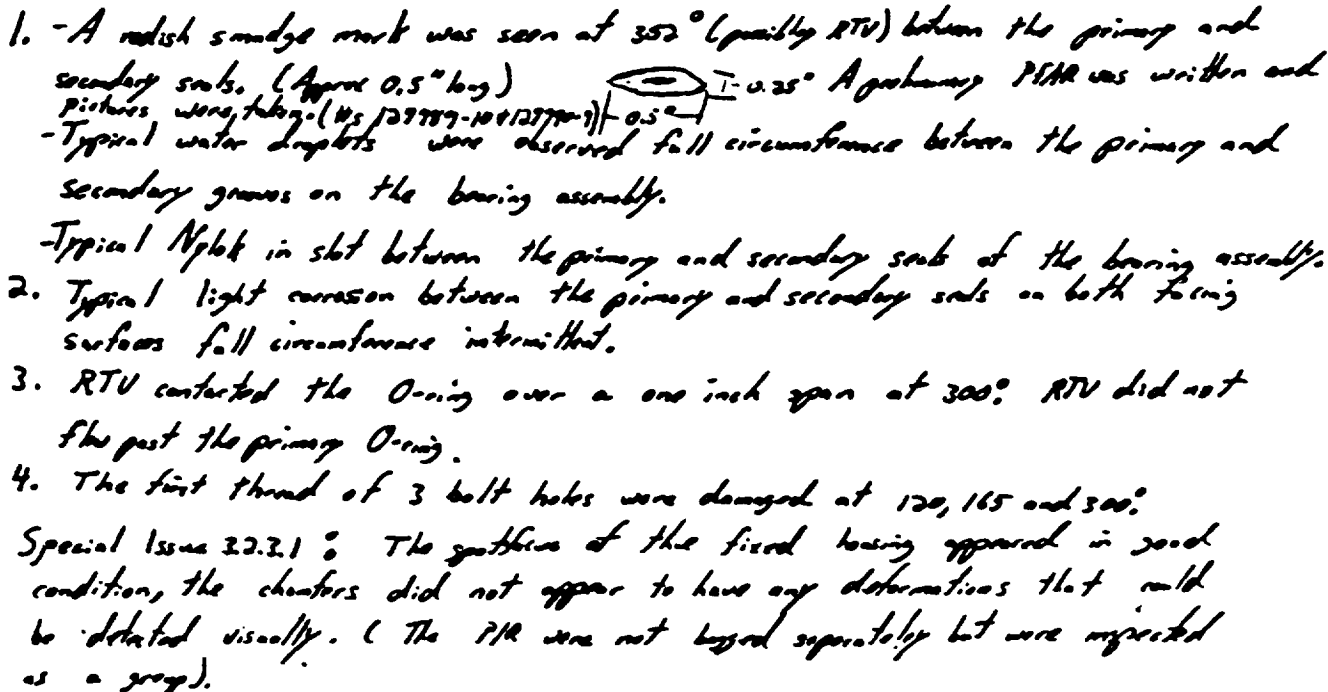 1. -A redish smudge mark was seen at 352° (possibly RTV) between the primary and
secondary seals. (Approx 0.5" long) 0.25" A preliminary PFAR was written and
pictures were taken. 0.5"
-Typical water droplets were observed full circumference between the primary and
secondary grooves on the bearing assembly.
-Typical Nylok in slot between the primary and secondary seals of the bearing assembly.
2. Typical light corrosion between the primary and secondary seals on both facing
surfaces full circumference intermittent.
3. RTV contacted the O-ring over a one inch span at 300°. RTV did not
flow past the primary O-ring.
4. The first thread of 3 bolt holes were damaged at 120, 165 and 300°.
Special Issue 3.2.3.1 : The spotfaces of the fixed housing appeared in good
condition, the chamfers did not appear to have any deformations that could
be detected visually. ( The were not bagged separately but were inspected
as a group).